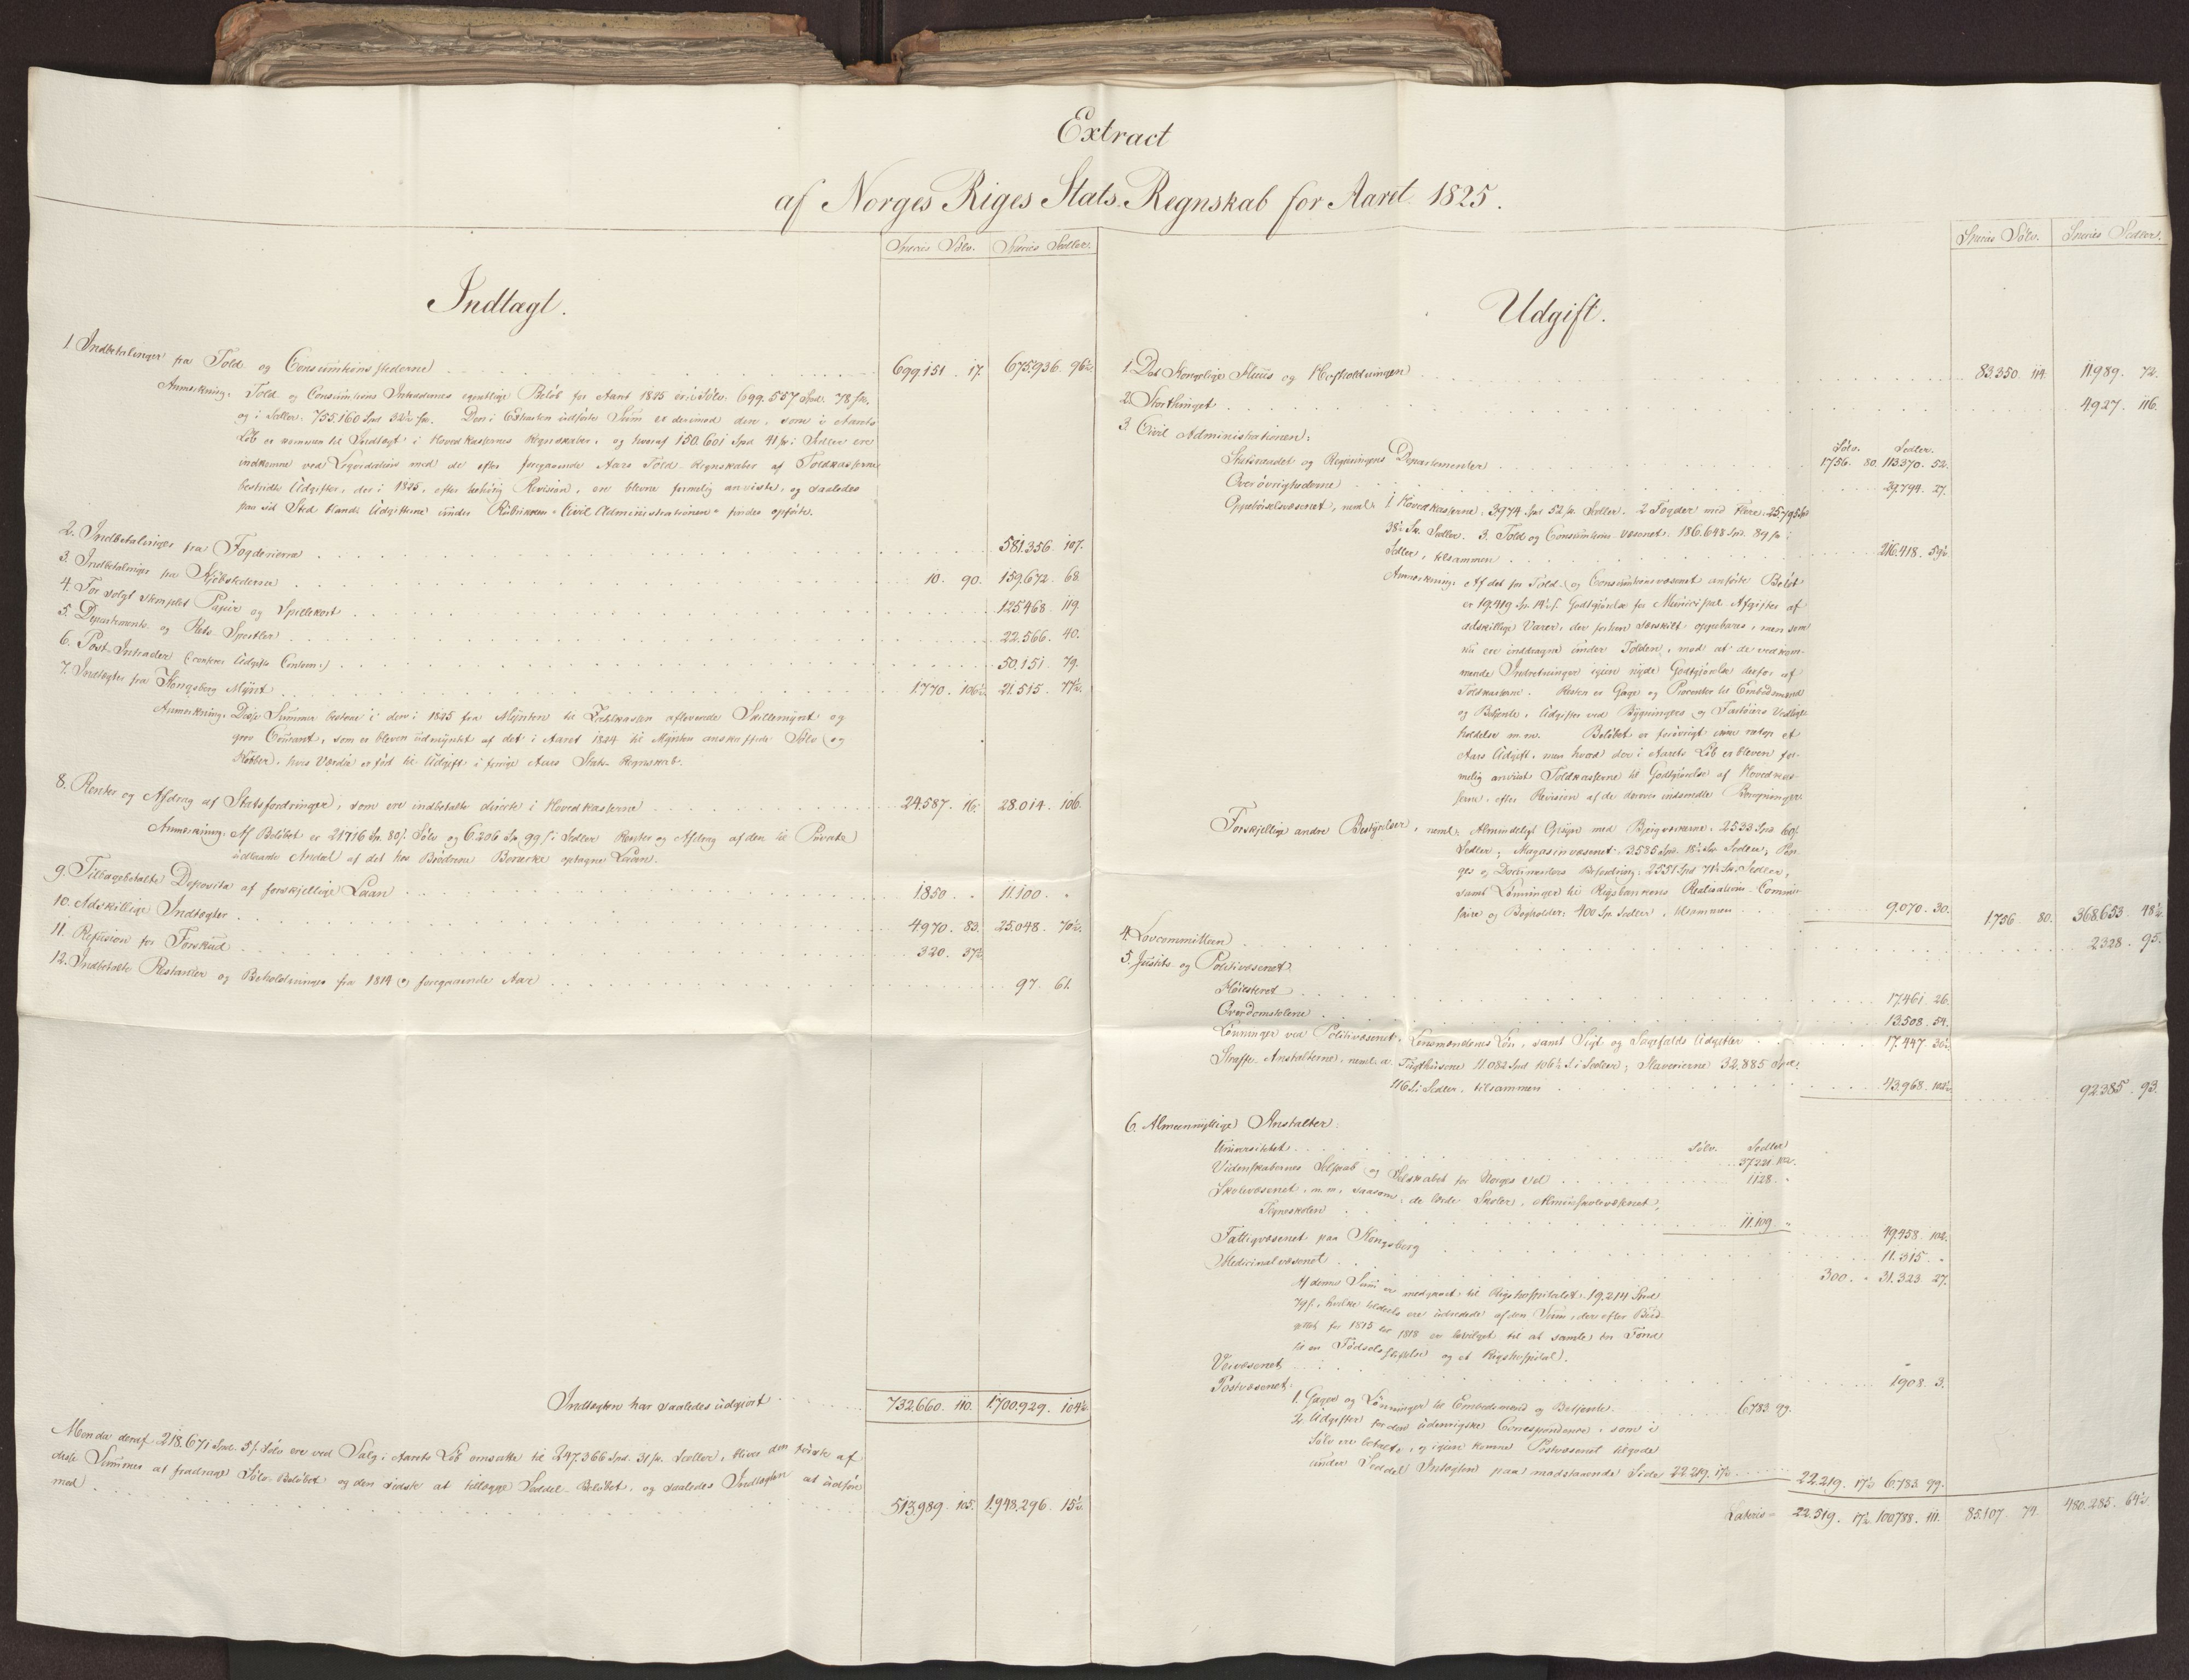 Extract
af Norges Riges Stats-Regnskab for Aaret 1825.
Species Sølv. Species Sedler.
Indtægt.
1. Indbetalinger fra Told og Consumtionsstederne 699.151. 17. 675.936. 96½.
Anmærkning. Told og Consumtions Intradernes egentlige Beløb for Aaret 1825 er i Sølv. 699.557 Spd. 78 sk.
og i Sedler. 755.160 Spd 32½ sk. Den i Extracten udførte Sum er derimod den, som i Aarets
Løb er kommen til Indtægt i Hovedkassernes Regnskaber, og hvoraf 150.601 Spd 41 sk. i Sedler ere
indkomne ved Liqvidation med de efter foregaaende Aars Told-Regnskaber af Toldkasserne
bestridte Udgifter, der i 1825, efter behørig Revision, ere blevne formelig anviste, og saaledes
paa sit Sted blandt Udgifterne under Rubrikken "Civil Administrationen" findes opførte.
2. Indbetalinger fra Fogderierne 581.356. 107.
3. Indbetalinger fra Kjøbstæderne 10. 90. 159.672. 68.
4. For solgt stemplet Papir og Spillekort 125.468. 119.
5. Departements og Rets-Sportler 22.566. 40.
6. Post-Intrader (confr. Udgifts Conten:) 50.151. 79.
7. Indtægter fra Kongsberg Mynt 1.770. 106½. 21.515. 77½.
Anmærkning. Disse Summer bestaae i den i 1825 fra Mynten til Zahlkassen afleverede Skillemynt og
grov Courant, som er bleven udmyntet af det i Aaret 1824 til Mynten anskaffede Sølv og
Kobber, hvis Værdie er ført til Udgift i forrige Aars Stats-Regnskab.
8. Renter og Afdrag af Statsfordringer, som ere indbetalte directe i Hovedkasserne 24.587. 16. 28.014. 106.
Anmærkning. Af Beløbet er 21716 Sp. 80 s. Sølv og 6.206 Sp. 99 s. i Sedler Renter og Afdrag af den til Private
udlaante Andeel af det hos Brødrene Benecke optagne Laan.
9. Tilbagebetalte Deposita af forskjellige Laan 1.850. " 11.100. "
10. Adskillige Indtægter 4.970. 83. 25.048. 70½.
11. Refusion for Forskud 320. 37½.
12. Indbetalte Restancer og Beholdninger fra 1814 og foregaaende Aar 97. 61.
Indtægten har saaledes udgjort 732.660. 110. 1.700.929. 104½.
Men da deraf 218.671 Spd. 5 s. Sølv ere ved Salg i Aarets Løb omsatte til 247.366 Spd. 31 sk. Sedler, bliver den første af
disse Summer at fradrage Sølv-Beløbet og den sidste at tillægge Seddel-Beløbet, og saaledes Indtægten at udføre
med 513.989. 105. 1.948.296. 15½.
Species Sølv. Species Sedler.
Udgift.
1. Det Kongelige Huus og Hofholdningen 83.350. 114. 11989. 72.
2. Storthinget 4.927. 116.
3. Civil Administrationen:
Sølv. Sedler.
Statsraadet og Regjeringens Departementer 1756. 80. 113.370. 52.
Overøvrighederne 29.794. 27.
Oppebørselsvæsenet, neml. 1 Hovedkasserne. 3974 Spd 52 sk. Sedler. 2 Fogder med flere. 25.795 Sp
38½ Sk. Sedler. 3. Told og Consumtions-væsenet. 186.648 Spd. 89 sk.
Sedler, tilsammen 216.418. 59½.
Anmærkning. Af det for Told og Consumtionsvæsenet anførte Beløb
er 19.419 Sp. 14½ s. Godtgjørelse for Municipal-Afgifter af
adskillige Varer, der forhen særskilt oppebares, men som
nu ere inddragne under Tolden, mod at de vedkom-
mende Indretninger igjen nyde Godtgjørelse derfor af
Toldkasserne. Resten er Gage og Procenter til Embedsmænd
og Betjente, Udgifter ved Bygningers og Fartøiers Vedlige-
holdelse m.m. Beløbet er forøvrigt ikke netop et
Aars Udgift, men hvad der i Aarets Løb er bleven for-
melig anviist Toldkasserne til Godtgjørelse af Hovedkas-
serne, efter Revision af de derover indsendte Regninger.
Forskjellige andre Bestyrelser, neml. Almindeligt Opsyn med Bjergværkerne. 2533 Spd 60 s.
Sedler; Magasinvæsenet 3.585 Spd. 18½ sk. Sedler; Pen-
ges og Documenters Befordring; 2551 Spd 71½ sk. Sedler,
samt Lønninger til Rigsbankens Realisations-Commis-
saire og Bogholder; 400 Sp. Sedler, tilsammen 9.070. 30. 1.756. 80. 368.653. 48½.
4. Lovcommitteen 2328. 95.
5. Justits og Politivæsenet.
Høiesteret 17.461. 26.
Overdomstolene 13.508. 54.
Lønninger ved Politivæsenet, Lensmændenes Løn, samt Sigt og Sagefalds Udgifter 17.447. 30½.
Straffe-Anstalterne, neml. a. Tugthusene 11.082 Spd 106½ s. i Sedler; Slaverierne 32.885 Spd.
116 s. i Sedler, tilsammen 43.968. 102½. 92.385. 93.
6. Almeennyttige Anstalter:
Sølv. Sedler
Universitetet 37.221. 102.
Videnskabernes Selskab og Selskabet for Norges Vel 1128. "
Skolevæsenet, m.m., saasom de lærde Skoler, Almueskolevæsenet,
Tegneskolen 11.109. " 49.458. 102.
Fattigvæsenet paa Kongsberg 11.315. "
Medicinalvæsenet 300. " 31.323. 27.
Af denne Sum er medgaaet til Rigshospitalet. 19.214 Spd
79 s., hvilke tildeels ere udredede af den Sum, der efter Bud-
gettet for 1815 til 1818 er bevilget til at samle en Fond
til en Fødselsstiftelse og et Rigshospital.
Veivæsenet 1908. 3.
Postvæsenet.
1. Gager og Lønninger til Embedsmænd og Betjente 6783. 99.
2. Udgifter for den udenrigske Correspondence, som i
Sølv ere betalte, og igjen komme Postvæsenet tilgode
under Seddel Indtægten paa modstaaende Side 22.219. 17½. 22.219. 17½. 6.783. 99.
Lateris 22.519. 17½. 100.788. 111. 85.107. 74. 480.285. 64½.